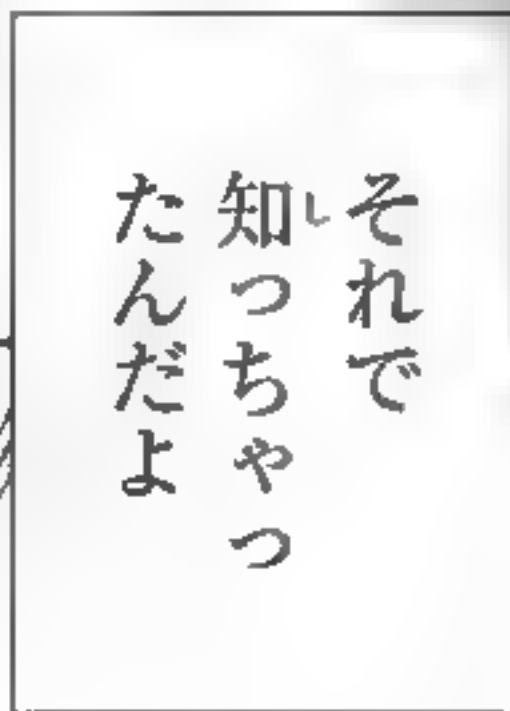 それで
知っちゃっ
たんだよ